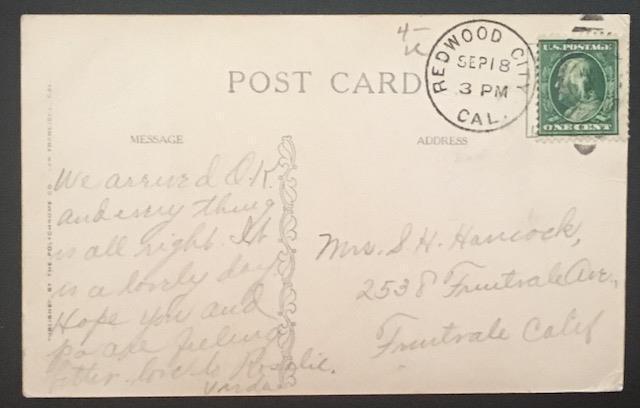 4-
POST CARD
REDWOOD CITY
SEP 18
3 PM
CAL.
U.S. POSTAGE
ONE CENT
MESSAGE
ADDRESS
We arrived O.K.
and every thing
is all right. It
is a lovely day
Hope you and
pa are feeling
better love to Rosalie.
Mrs. S. H. Hancock,
2538 Fruitvale Ave.,
Fruitvale Calif
PUBLISHED BY THE POLYCHROME CO., SAN FRANCISCO, CAL.